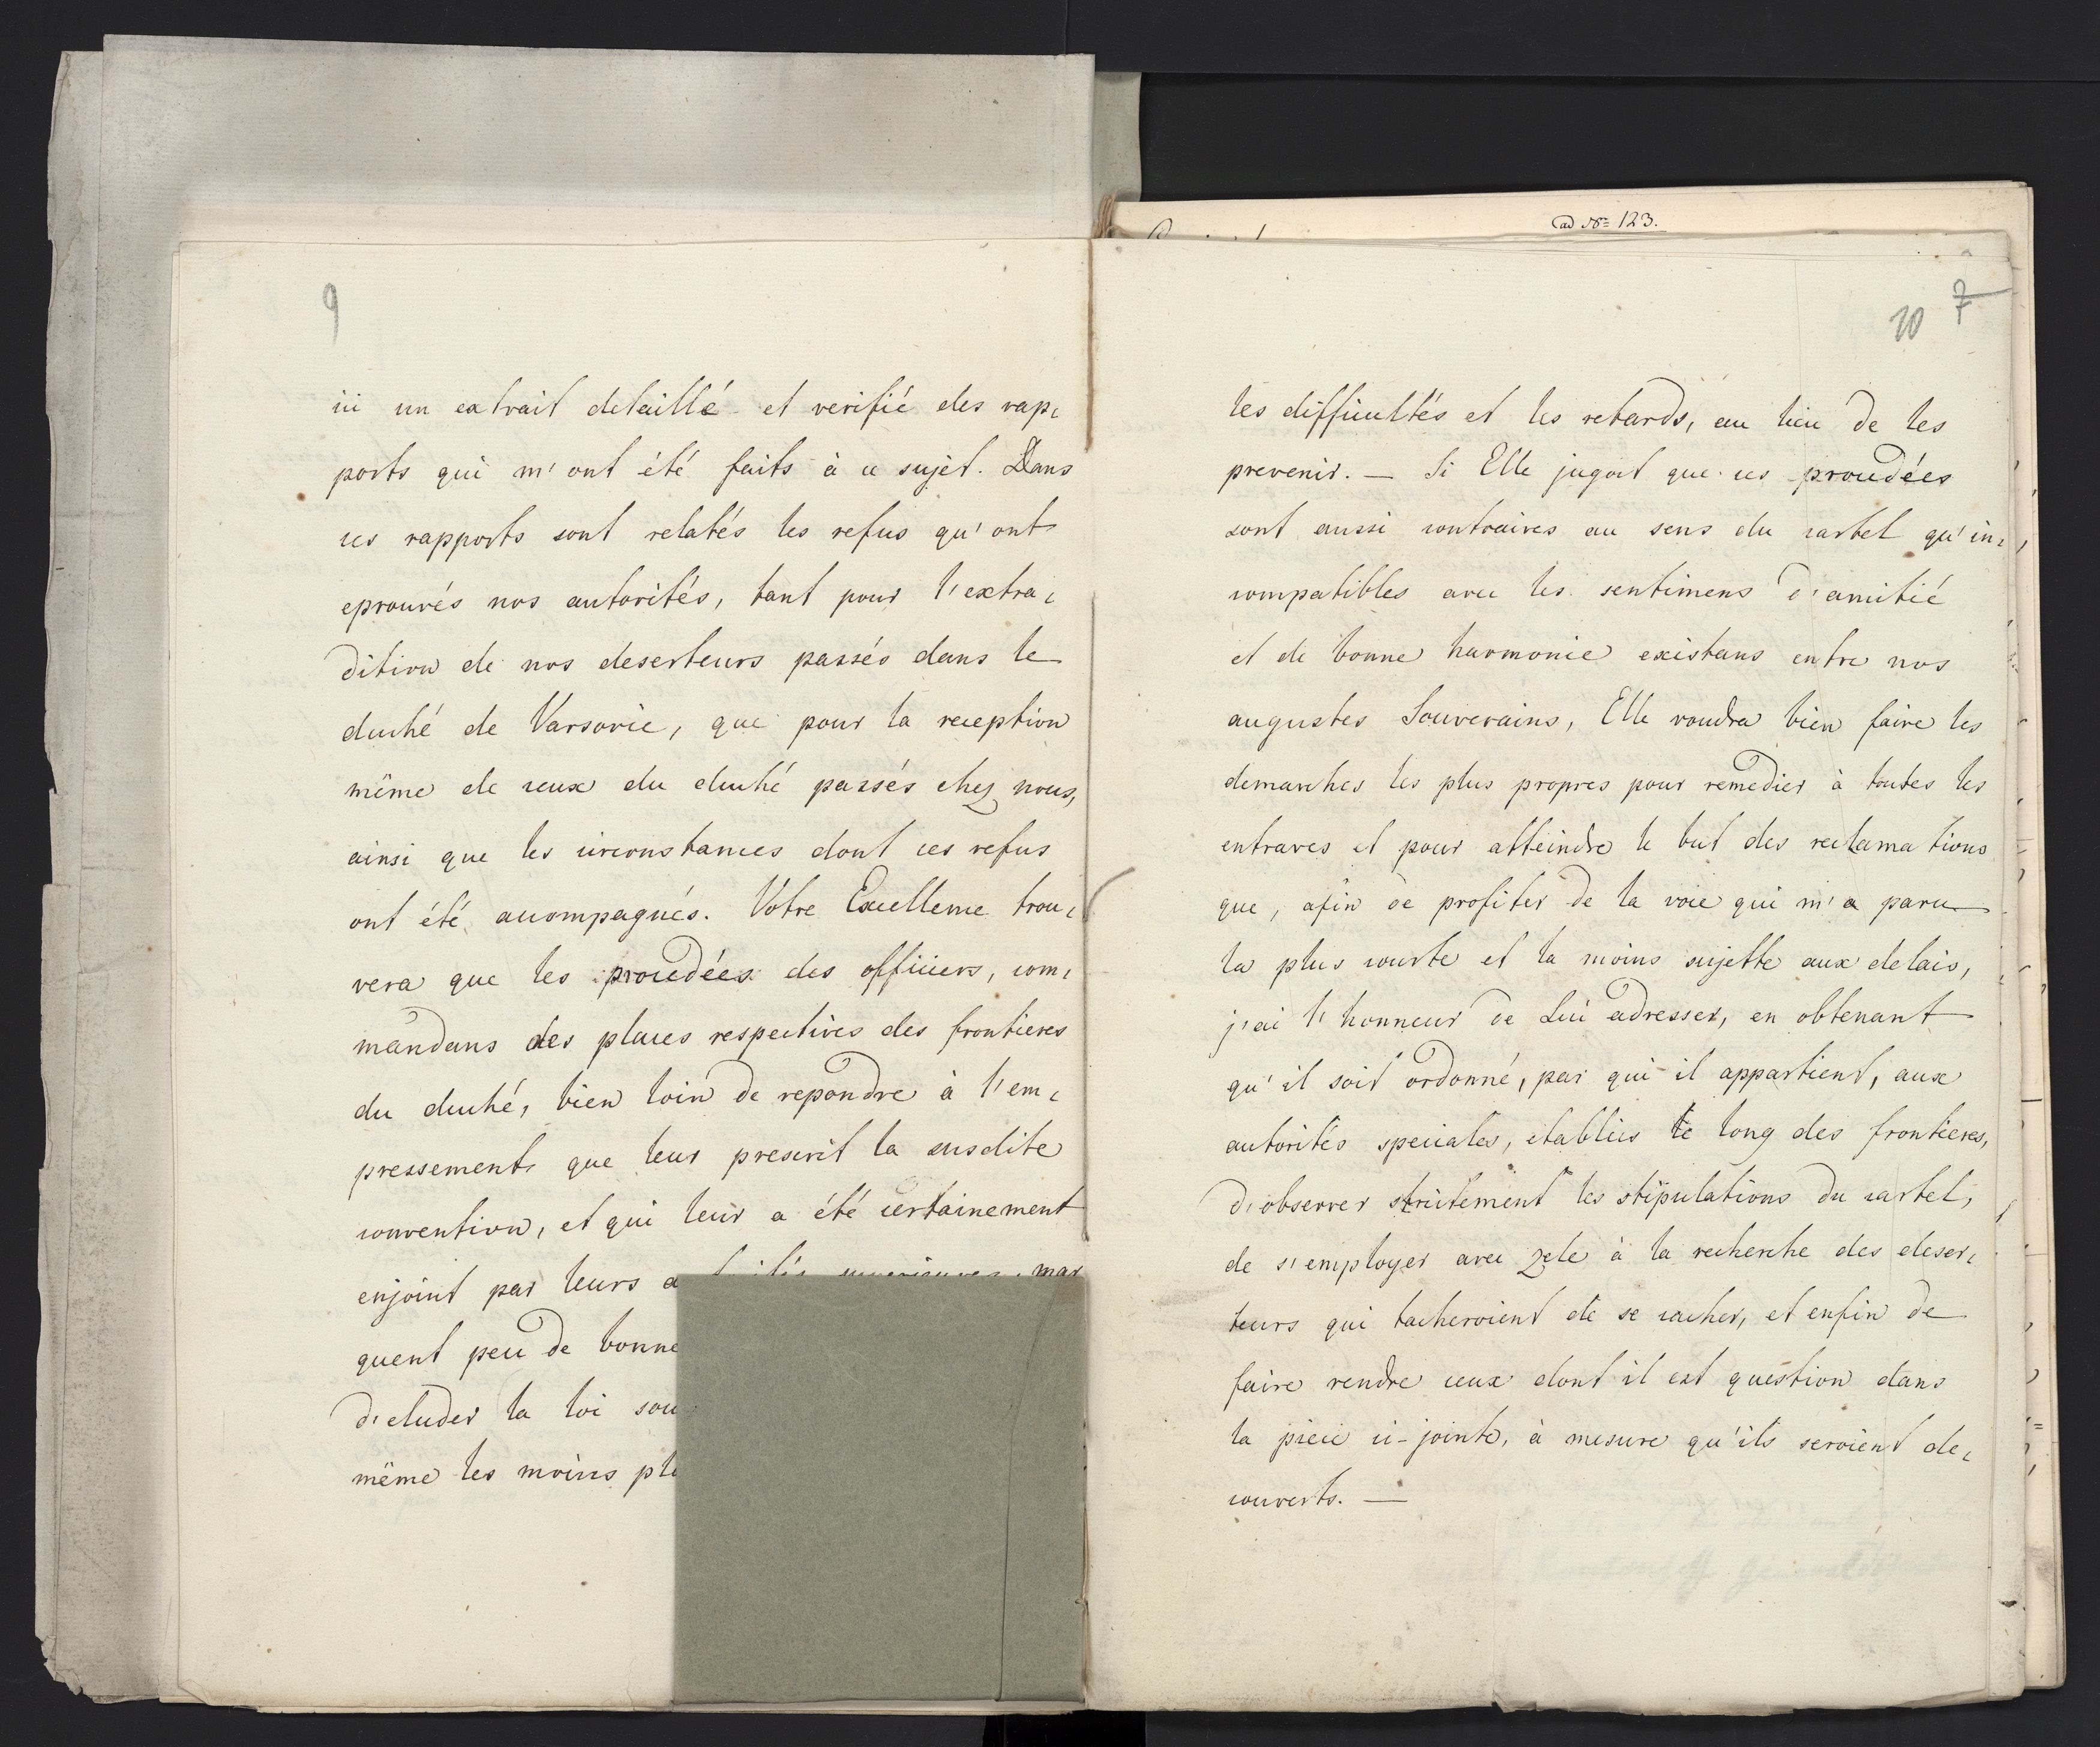 9
ici un extrait detaillé et verifié des rap-
ports qui m'ont été faits à ce sujet. Dans
ces rapports sont relatés les refus qu'ont
eprouvés nos autorités, tant pour l'extra-
dition de nos deserteurs passés dans le
duché de Varsovie, que pour la reception
même de ceux du duché passés chez nous,
ainsi que les circonstances dont ces refus
ont été accompagnés. Vôtre Excellence trou-
vera que les procédées des officiers, com-
mandans des places respectives des frontieres
du duché, bien loin de repondre à l'em-
pressement que leur prescrit la susdite
convention, et qui leur a été certainement
enjoint par leurs mar
quent peu de bonne
d'eluder la loi
même les moins
ad No 123.
10 7
les difficultés et les retards, au lieu de les
prevenir. — Si Elle jugoit que ces procédées
sont aussi contraires au sens du cartel qu'in-
compatibles avec les sentimens d'amitié
et de bonne harmonie existans entre nos
augustes Souverains, Elle voudra bien faire les
demarches les plus propres pour remedier à toutes les
entraves et pour atteindre le but des reclamations
que, afin de profiter de la voie qui m'a paru
la plus courte et la moins sujette aux delais,
j'ai l'honneur de Lui adresser, en obtenant
qu'il soit ordonné, par qui il appartient, aux
autorités speciales, etablies le long des frontieres,
d'observer strictement les stipulations du cartel,
de s'employer avec zele à la recherche des deser-
teurs qui tacheroient de se cacher, et enfin de
faire rendre ceux dont il est question dans
la piece ci-jointe, à mesure qu'ils seroient de-
couverts. —